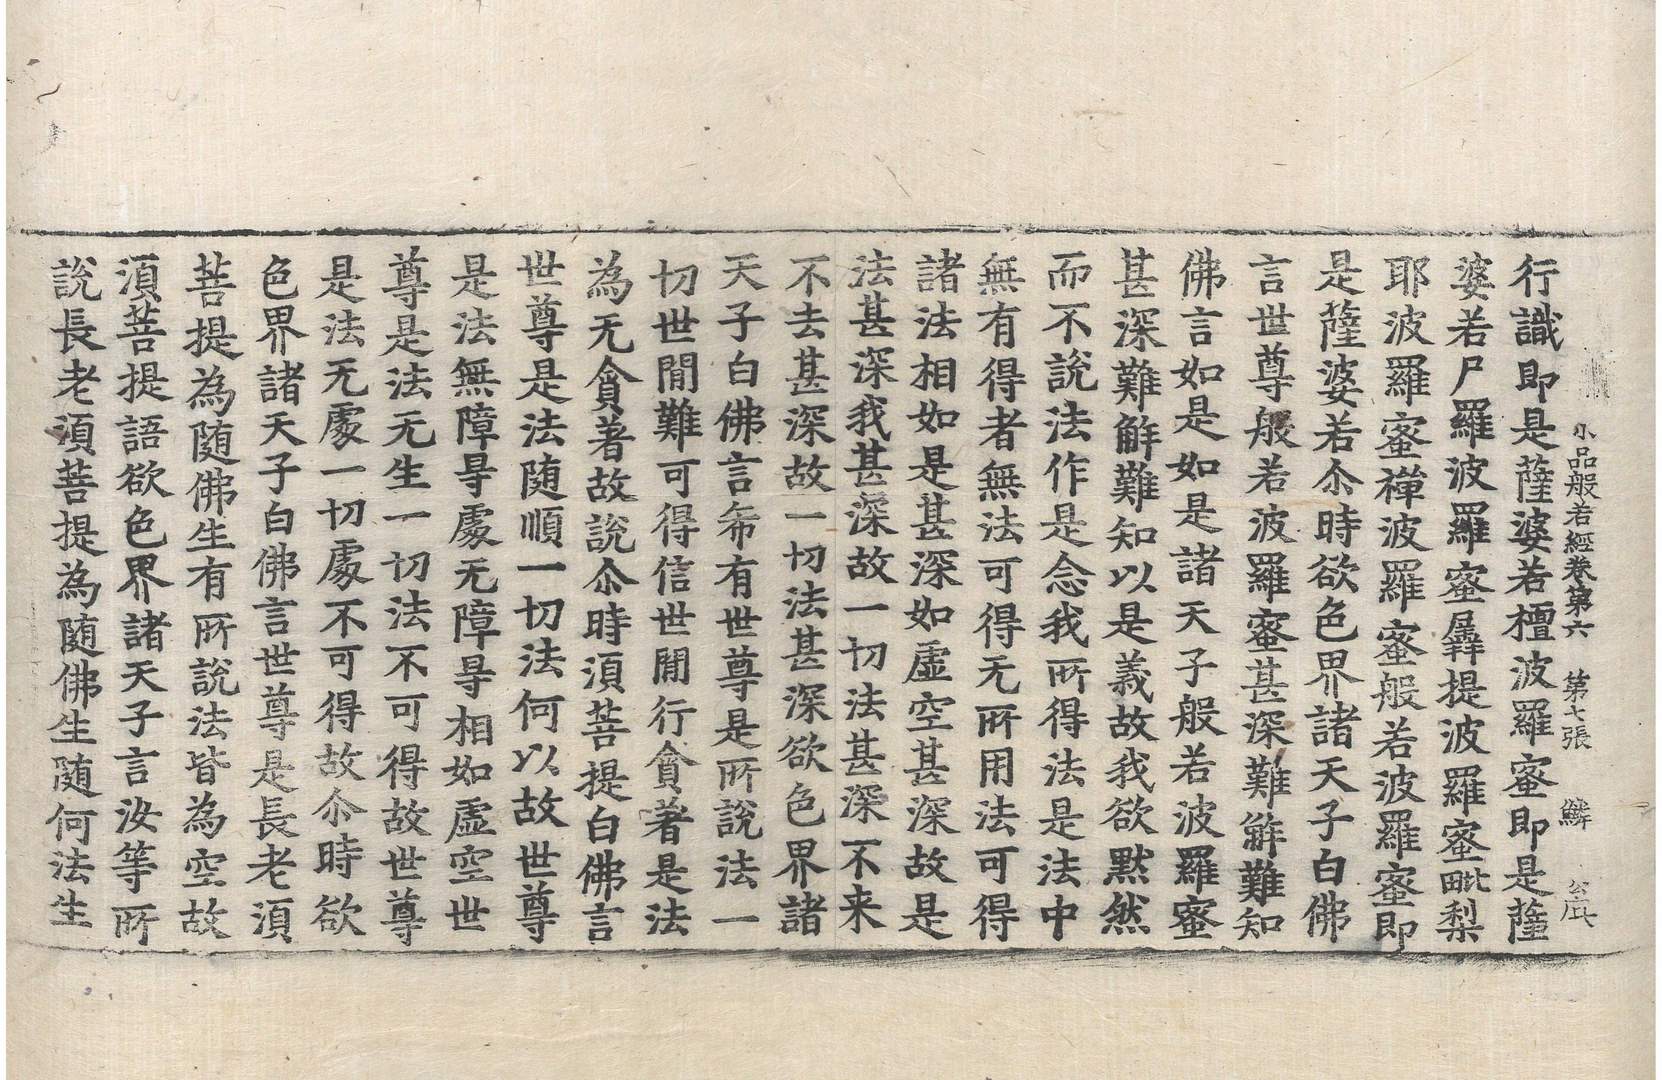 小品般若經卷第六 第七張 鱗
行識即是薩婆若檀波羅蜜即是薩
婆若尸羅波羅蜜羼提波羅蜜毗梨
耶波羅蜜禪波羅蜜般若波羅蜜即
是薩婆若尒時欲色界諸天子白佛
言世尊般若波羅蜜甚深難解難知
佛言如是如是諸天子般若波羅蜜
甚深難解難知以是義故我欲默然
而不說法作是念我所得法是法中
無有得者無法可得无所用法可得
諸法相如是甚深如虛空甚深故是
法甚深我甚深故一切法甚深不来
不去甚深故一切法甚深欲色界諸
天子白佛言希有世尊是所說法一
切世閒難可得信世閒行貪著是法
為无貪著故說尒時須菩提白佛言
世尊是法随順一切法何以故世尊
是法無障㝵處无障㝵相如虛空世
尊是法无生一切法不可得故世尊
是法无處一切處不可得故尒時欲
色界諸天子白佛言世尊是長老須
菩提為随佛生有所說法皆為空故
須菩提語欲色界諸天子言汝等所
說長老須菩提為随佛生随何法生